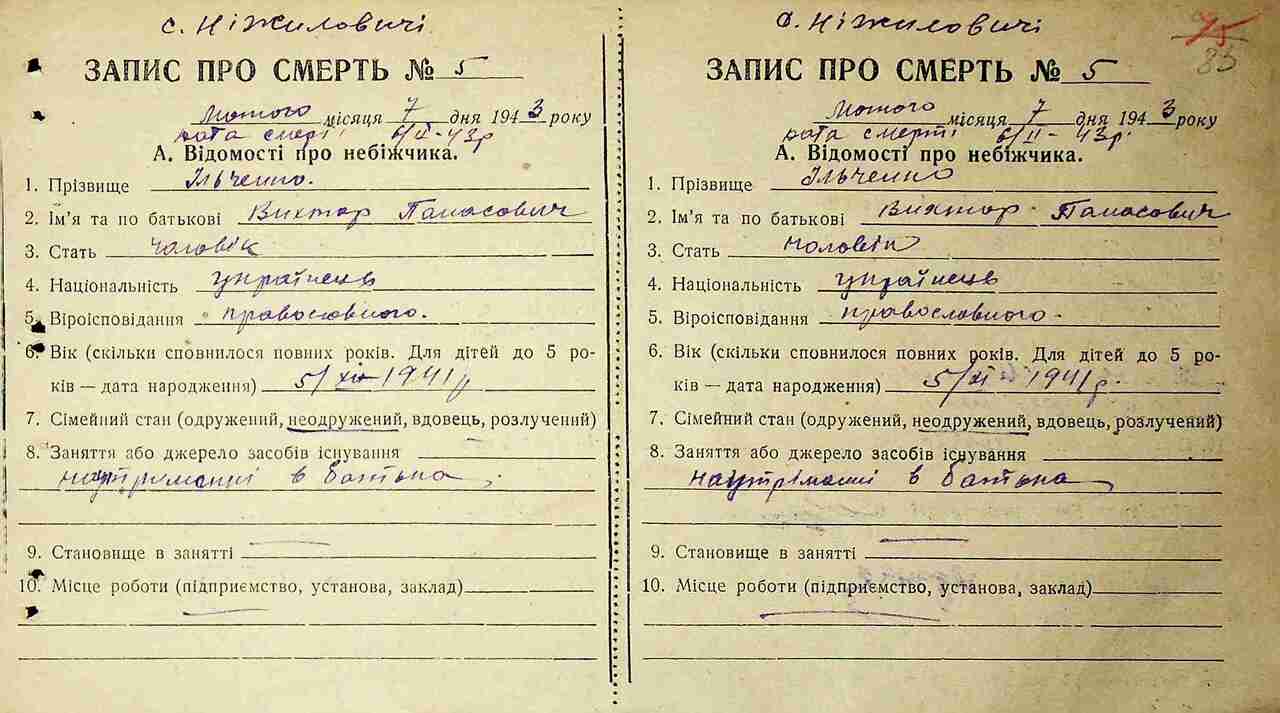 с. Ніжиловичі
ЗАПИС ПРО СМЕРТЬ № 5
Лютого місяця 7 дня 1943 року
дата смерті 6/II - 43р
А. Відомості про небіжчика.
1. Прізвище Ільченко.
2. Ім'я та по батькові Виктор Панасович
3. Стать чаловік
4. Національність українець
5. Віроісповідання православного.
6. Вік (скільки сповнилося повних років. Для дітей до 5 ро-
ків — дата народження) 5/XII 1941р
7. Сімейний стан (одружений, неодружений, вдовець, розлучений)
8. Заняття або джерело засобів існування
наутриманні в батька
9. Становище в занятті
10. Місце роботи (підприємство, установа, заклад)
с. Ніжиловичі
75
83
ЗАПИС ПРО СМЕРТЬ № 5
Лютого місяця 7 дня 1943 року
дата смерті 6/II - 43р.
А. Відомості про небіжчика.
1. Прізвище Ільченко
2. Ім'я та по батькові Виктор Панасович
3. Стать чоловік
4. Національність українець
5. Віроісповідання православного.
6. Вік (скільки сповнилося повних років. Для дітей до 5 ро-
ків — дата народження) 5/XI 1941р.
7. Сімейний стан (одружений, неодружений, вдовець, розлучений)
8. Заняття або джерело засобів існування
наутріманні в батька
9. Становище в занятті
10. Місце роботи (підприємство, установа, заклад)